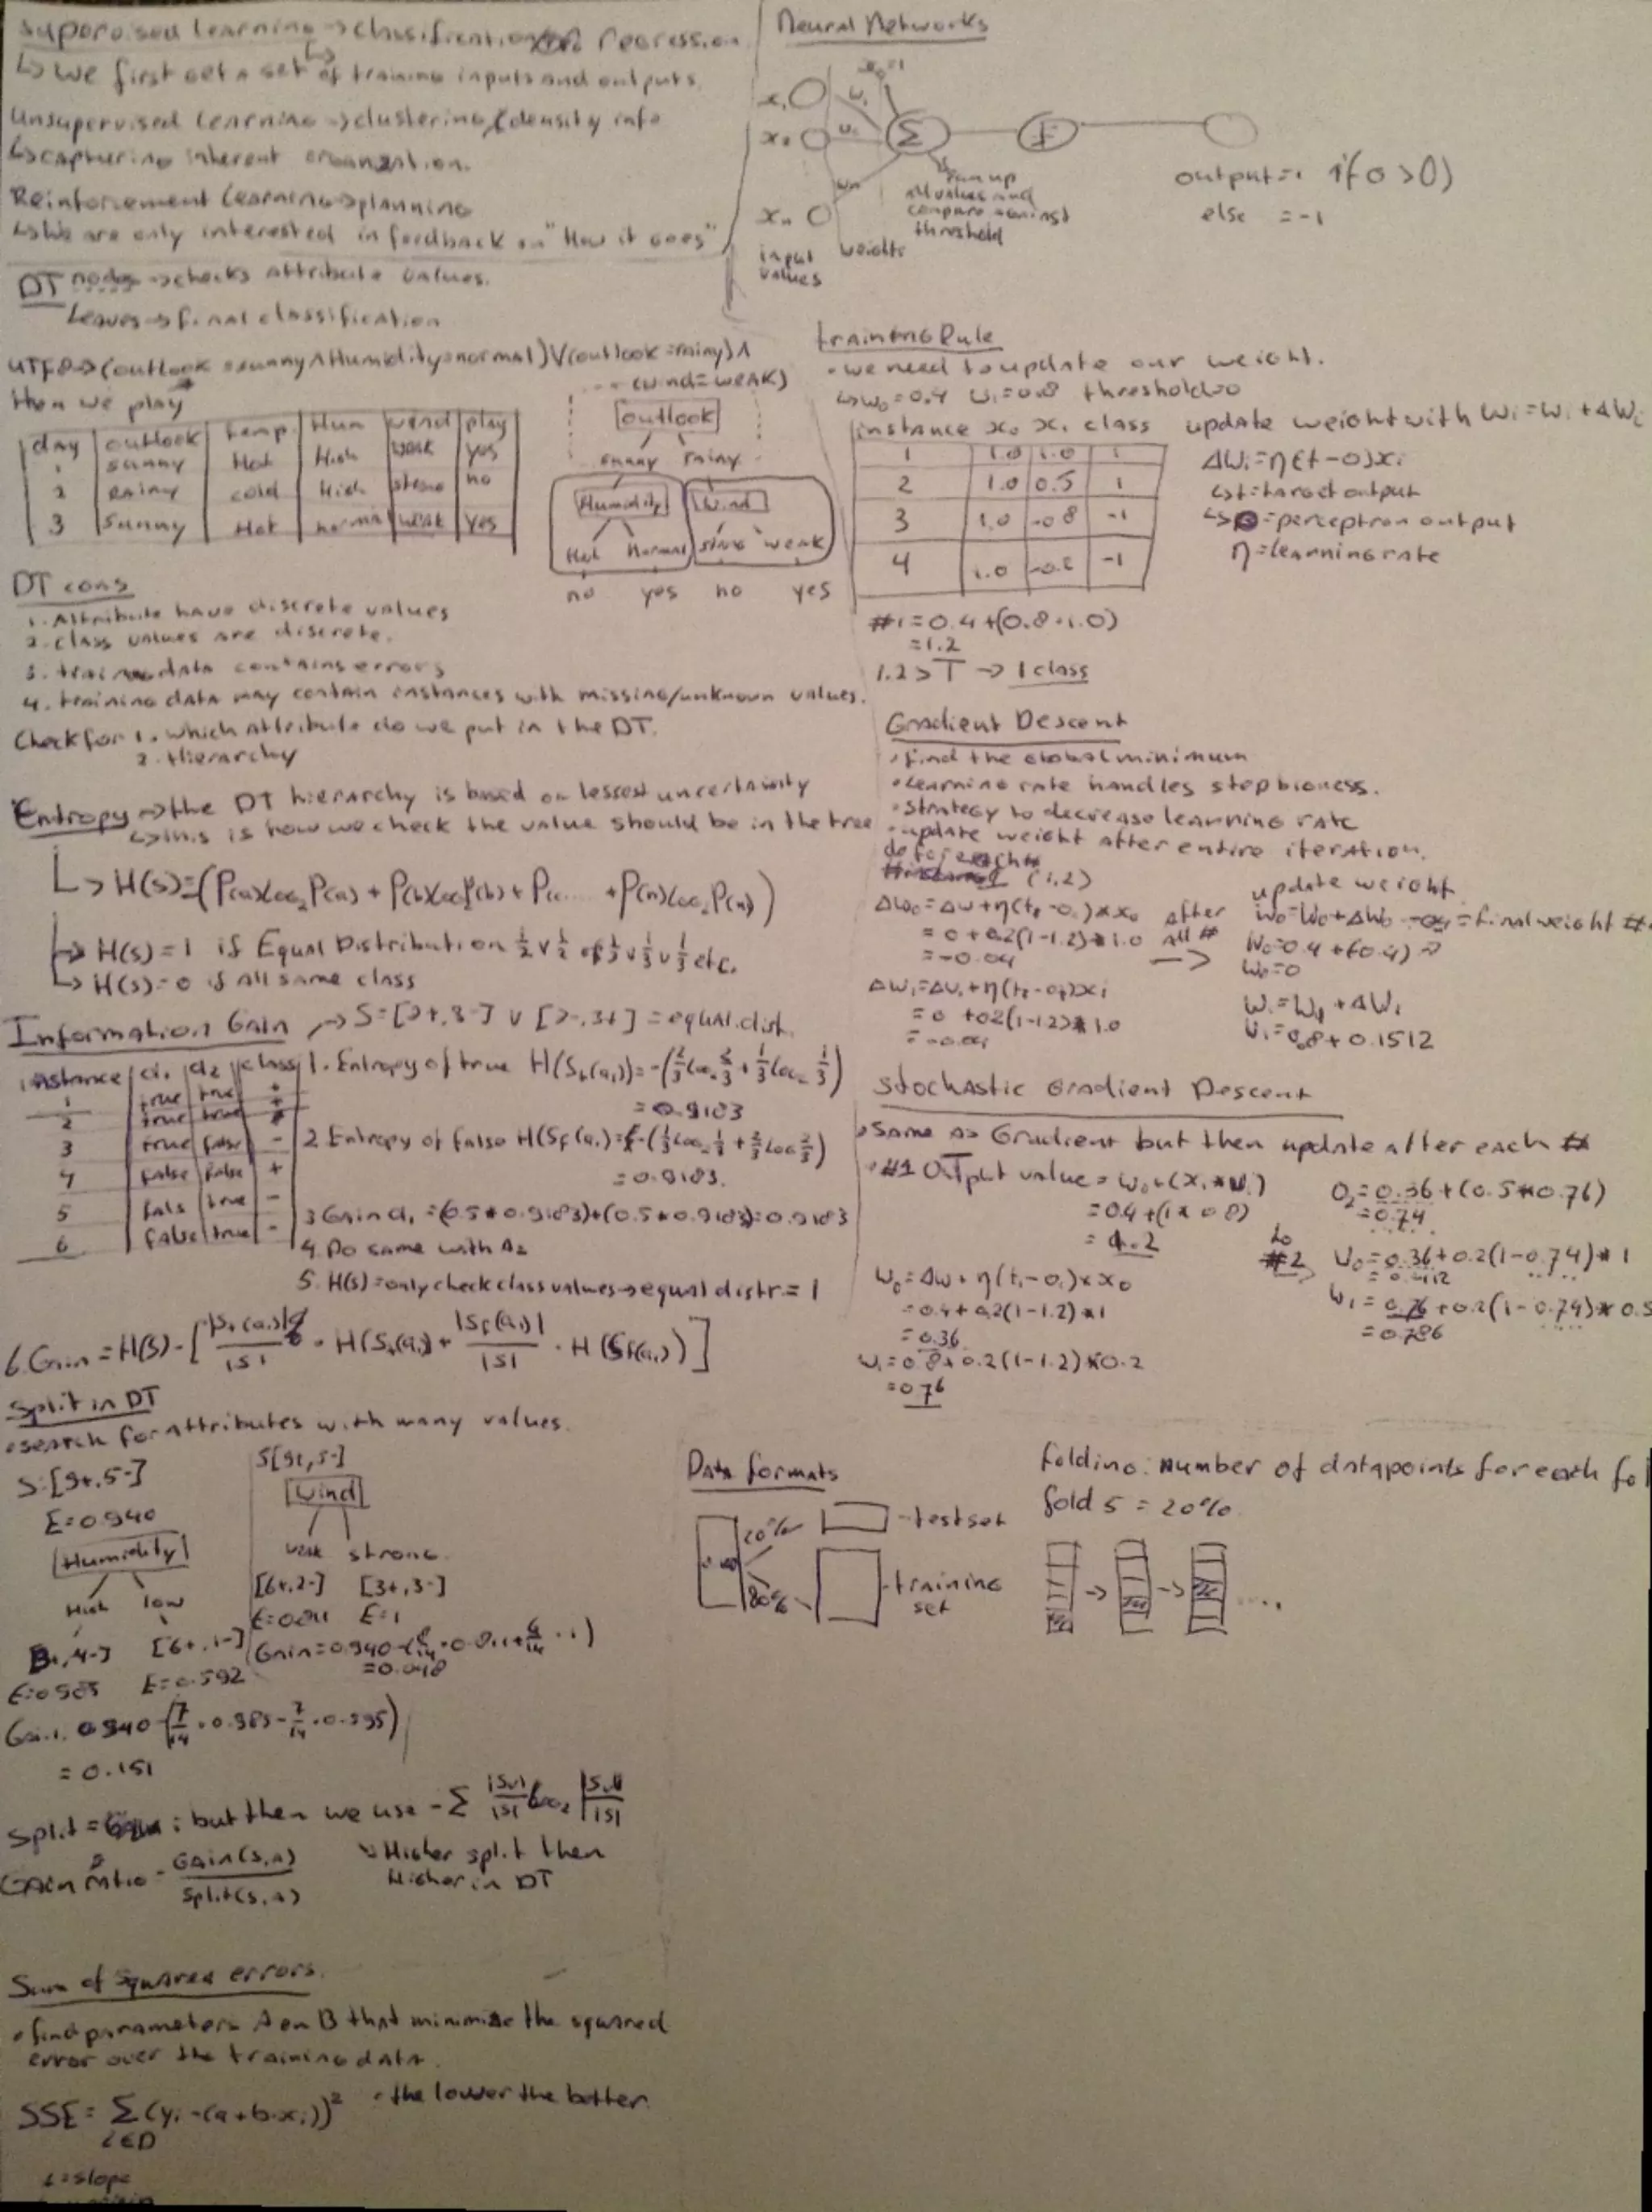 supervised learning → classification or regression
↳ we first get a set of training inputs and outputs
unsupervised learning → clustering / density info
↳ capturing inherent
Reinforcement learning → planning
↳ We are only interested in feedback on "How it goes"
DT nodes → checks attribute values.
Leaves → final classification
(outlook = sunny ∧ Humidity = normal) ∨ (outlook = rainy) ∧
(wind = weak)
then we play
day outlook temp Hum wend play
1 sunny Hot High weak yes
2 Rainy cold High no
3 sunny Hot normal weak yes
outlook
sunny rainy
Humidity Wind
Normal weak
no yes no yes
DT cons
1. Attribute have discrete values
2. class values are discrete.
3. data contains errors
4. training data may contain instances with missing/unknown values.
Check for 1. which attribute do we put in the DT.
2. Hierarchy
Entropy → the DT hierarchy is based on lessest uncertainity
↳ this is how we check the value should be in the tree
↳ H(s) = (P(a)log₂P(a) + P(b)log₂P(b) + P(c..... + P(n)log₂P(n))
↳ H(s) = 1 if Equal Distribution 1/2 v 1/2 of 1/3 v 1/3 v 1/3 etc.
↳ H(s) = 0 if all same class
Information Gain → S = [3+,3-] v [3-,3+] = equal.dist.
instance a₁ a₂ class
1 true true +
2 true true +
3 true false -
4 false false +
5 fals true -
6 false true -
1. Entropy of true H(St(a₁)) = -(2/3 log₂ 2/3 + 1/3 log₂ 1/3)
= 0.9183
2. Entropy of false H(Sf(a₁)) = -(1/3 log₂ 1/3 + 2/3 log 2/3)
= 0.9183.
3. Gain a₁ = (0.5 * 0.9183) + (0.5 * 0.9183) = 0.9183
4. Do same with A₂
5. H(s) = only check class values → equal distr. = 1
6. Gain = H(S) - [ |St(a₁)| / |S| · H(St(a₁)) + |Sf(a₁)| / |S| · H(Sf(a₁)) ]
Split in DT
• search for attributes with many values.
S: [9+,5-]
E = 0.940
Humidity
High low
[3+,4-] [6+,1-]
E = 0.985 E = 0.592
Gain. 0.940 - (7/14 · 0.985 - 7/14 · 0.595)
= 0.151
S[9+,5-]
Wind
weak strong
[6+,2-] [3+,3-]
E = 0.811 E = 1
Gain = 0.940 - (8/14 · 0.811 + 6/14 · 1)
= 0.048
Split = Gain : but then we use - Σ |Sv|/|S| log₂ |Sv|/|S|
Gain ratio = Gain(S,A) / Split(S,A)
↘ Higher split then
Higher in DT
Sum of squared errors.
• find parameters A en B that minimize the squared
error over the training data.
SSE = Σ (yi - (a + b·xi))² • the lower the better
i ∈ D
= slope
Neural Networks
x₁ w₁ x₀=1
x₂ Σ
xn wn
input values
weights
sum up
all values and
compare against
threshold
output = 1 if (o > 0)
else = -1
training Rule
• we need to update our weight.
↳ w₀ = 0.4 w₁ = 0.8 threshold = 0
instance x₀ x₁ class
1 1.0 1.0 1
2 1.0 0.5 1
3 1.0 -0.8 -1
4 1.0 -1
update weight with wi = wi + Δwi
Δwi = η(t - o)xi
↳ t = target output
↳ o = perceptron output
η = learning rate
#1 = 0.4 + (0.8 · 1.0)
= 1.2
1.2 > T → 1 class
Gradient Descent
• find the global minimum
• Learning rate handles step bigness.
• Strategy to decrease learning rate
• update weight after entire iteration.
do for each #
(1,2)
Δw₀ = Δw + η(t₁ - o₁) * x₀
= 0 + 0.2(1 - 1.2) * 1.0
= -0.04
after all # →
Δw₁ = Δw₁ + η(t₁ - o₁)xi
= 0 + 0.2(1 - 1.2) * 1.0
= -0.04
update weight
w₀ = w₀ + Δw₀ = final weight #
w₀ = 0.4 + (-0.4) =
w₀ = 0
w₁ = w₁ + Δw₁
w₁ = 0.8 + 0.1512
Stochastic Gradient Descent
• same as Gradient but then update after each #
• #1 Output value = w₀ + (x₁ * w₁)
= 0.4 + (1 * 0.8)
= 1.2
w₀ = Δw + η(t₁ - o₁) * x₀
= 0.4 + 0.2(1 - 1.2) * 1
= 0.36
w₁ = 0.8 + 0.2(1 - 1.2) * 0.2
= 0.76
to #2
O₂ = 0.36 + (0.5 * 0.76)
= 0.74
w₀ = 0.36 + 0.2(1 - 0.74) * 1
= 0.412
w₁ = 0.76 + 0.2(1 - 0.74) * 0.5
= 0.786
Data formats
20% - testset
80% - training
set
folding: number of datapoints for each fol
fold 5 = 20%